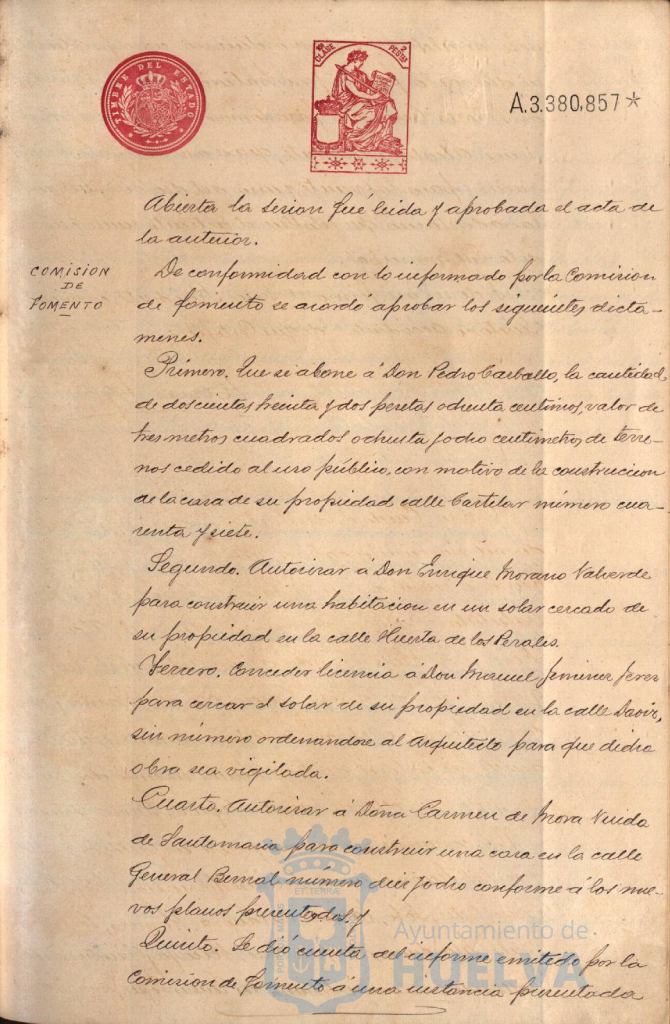 TIMBRE DEL ESTADO
10 CLASE 2 PESTAS
A.3.380,857*
Abierta la sesion fué leida y aprobada el acta de
la anterior.
COMISION
DE
FOMENTO
De conformidad con lo informado por la Comision
de fomento se acordó aprobar los siguientes dicta-
menes.
Primero. Que se abone á Don Pedro Carballo, la cantidad
de doscientas treinta y dos pesetas ochenta centimos, valor de
tres metros cuadrados ochenta y ocho centimetros de terre-
nos cedido al uso público, con motivo de la construccion
de la casa de su propiedad calle Castelar número cua-
renta y siete.
Segundo. Autorizar á Don Enrique Morano Valverde
para construir una habitacion en un solar cercado de
su propiedad en la calle Huerta de los Perales.
Terrero. Conceder licencia á Don Manuel Jiminez Jerez
para cercar el solar de su propiedad en la calle Daoiz,
sin número ordenandose al Arquitecto para que dicha
obra sea vigilada.
Cuarto. Autorizar á Doña Carmen de Mora Viuda
de Santamaria para construir una casa en la calle
General Bernal número diez y ocho conforme á los nue-
vos planos presentados. y
Quinto. Se dió cuenta del informe emitido por la
Comision de fomento á una instancia presentada
Ayuntamiento de
HUELVA